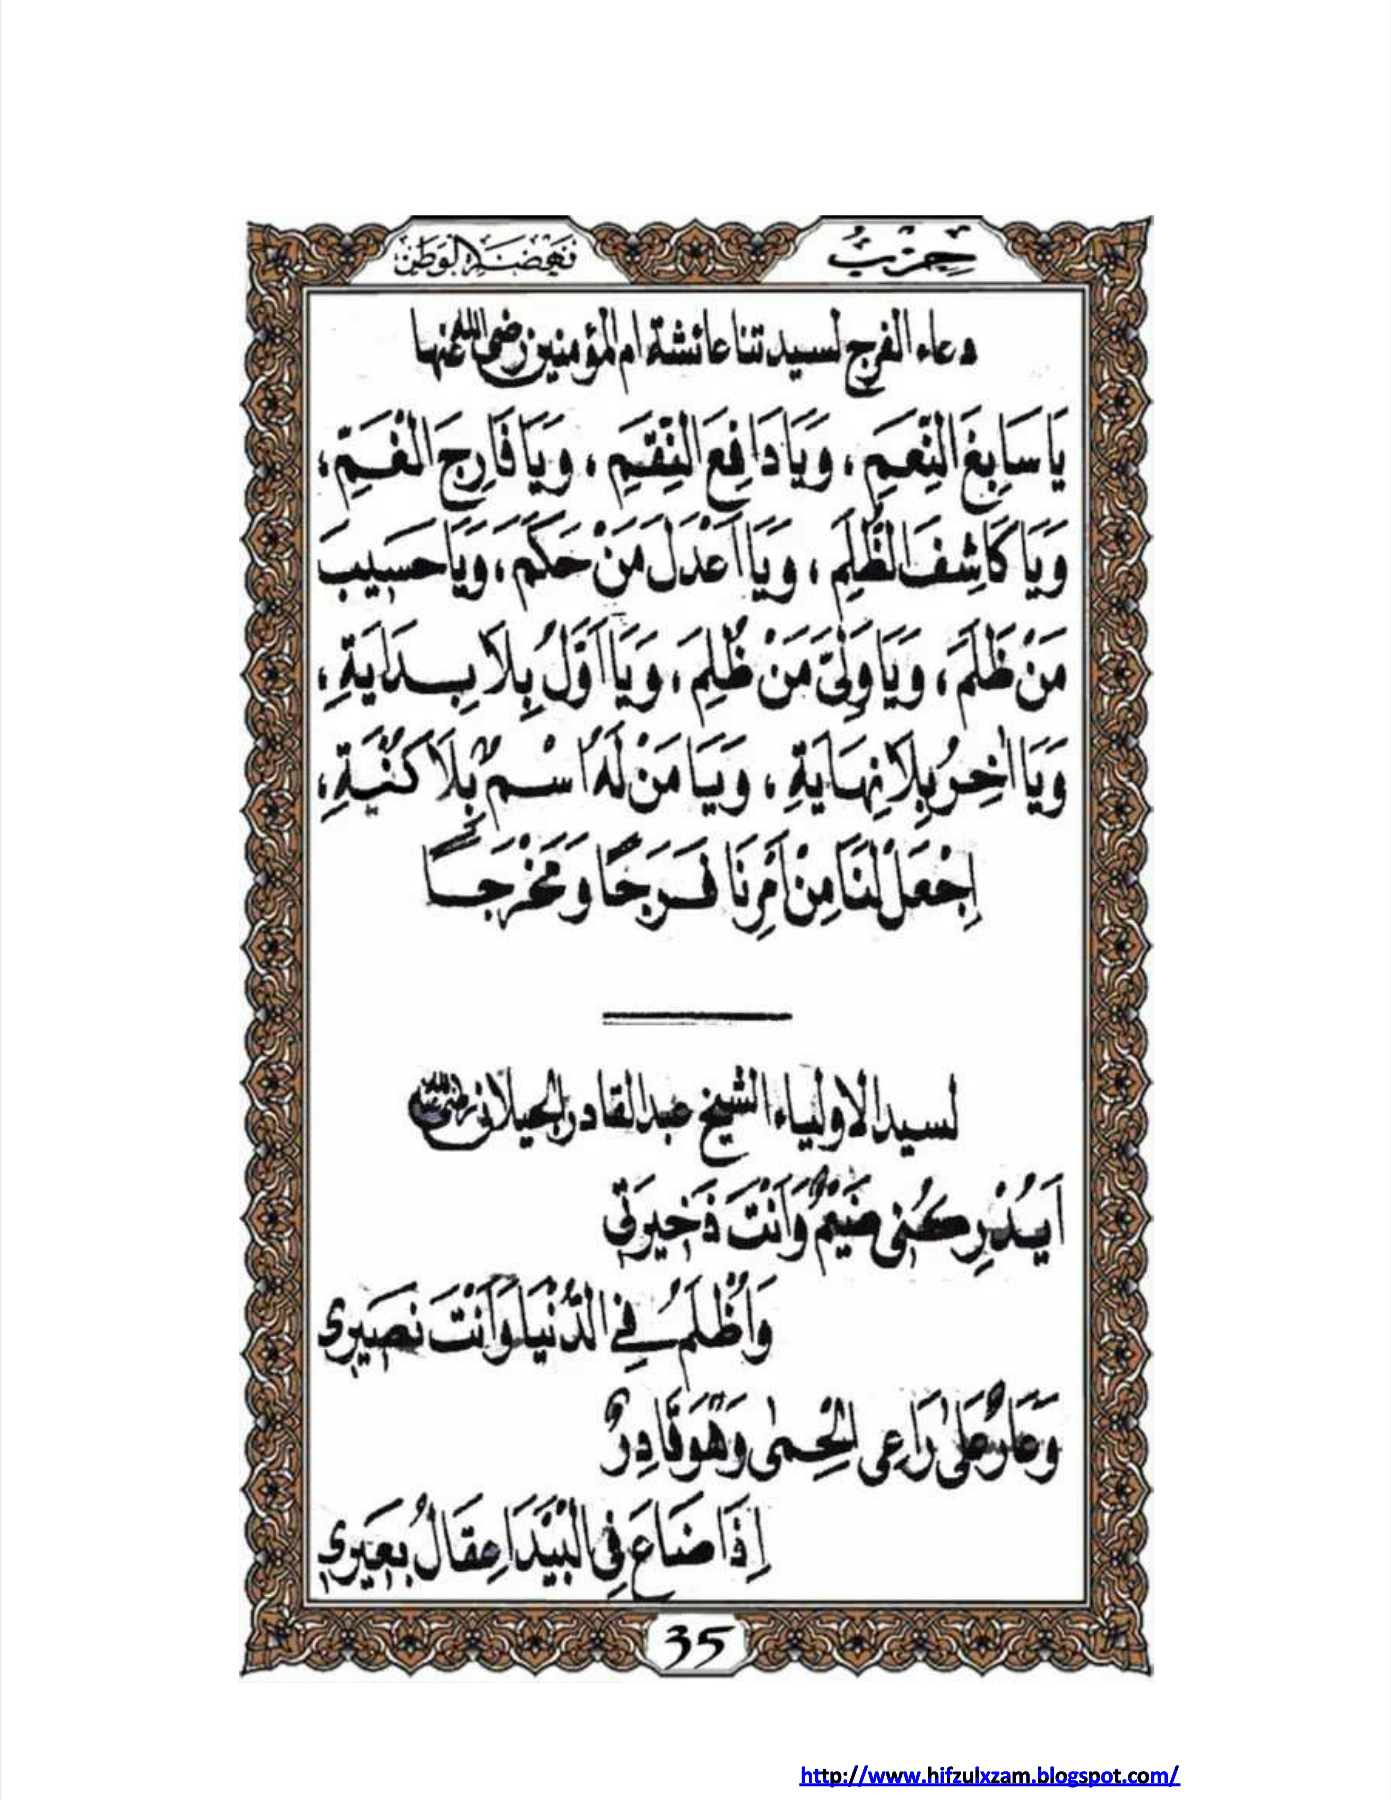 حِزْبُ
نَهْضَةِ الْوَطَنِ
دعاء الفرج لسيدتنا عائشة ام المؤمنين رضي الله عنها
يَا سَابِغَ النِّعَمِ ، وَيَا دَافِعَ النِّقَمِ ، وَيَا فَارِجَ الْغَمِّ ،
وَيَا كَاشِفَ الظُّلَمِ ، وَيَا اَعْدَلَ مَنْ حَكَمَ ، وَيَا حَسِيْبَ
مَنْ ظَلَمَ ، وَيَا وَلِيَّ مَنْ ظُلِمَ ، وَيَا اَوَّلُ بِلَا بِدَايَةٍ ،
وَيَا اٰخِرُ بِلَا نِهَايَةٍ ، وَيَا مَنْ لَهُ اسْمٌ بِلَا كُنْيَةٍ ،
اِجْعَلْ لَنَا مِنْ اَمْرِنَا فَرَجًا وَمَخْرَجًا
لسيد الاولياء الشيخ عبد القادر الجيلاني رضي الله عنه
اَيُدْرِكُنِى ضَيْمٌ وَاَنْتَ ذَخِيْرَتِى
وَاُظْلَمُ فِى الدُّنْيَا وَاَنْتَ نَصِيْرِى
وَعَارٌ عَلٰى رَاعِى الْحِمٰى وَهُوَ قَادِرٌ
اِذَا ضَاعَ فِى الْبَيْدَا عِقَالُ بَعِيْرِى
35
http://www.hifzulxzam.blogspot.com/